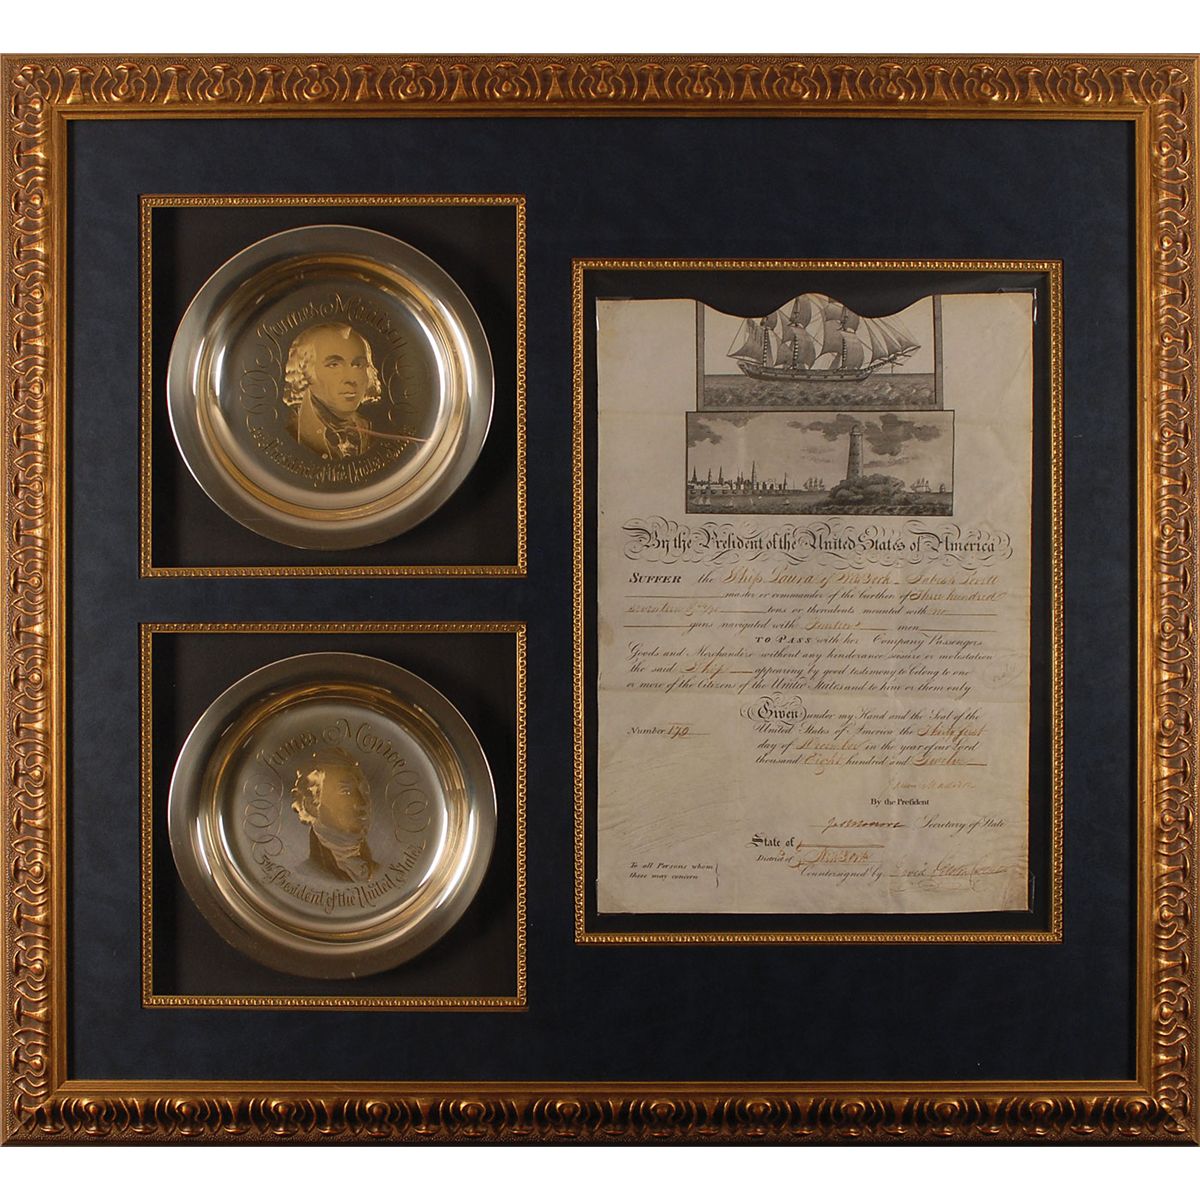 James Madison
4th President of the United States
James Monroe
5th President of the United States
By the President of the United States of America
SUFFER the Ship Laura of NewYork
master or commander of the burthen of Three hundred
seventeen tons or thereabouts mounted with no
guns navigated with men
TO PASS with her Company Passengers
Goods and Merchandize without any hinderance seisure or molestation
the said Ship appearing by good testimony to belong to one
or more of the Citizens of the United States and to him or them only
Given under my Hand and the Seal of the
Number 170 United States of America the Thirty first
day of December in the year of our Lord
thousand Eight hundred and Twelve
James Madison
By the President
Jas Monroe Secretary of State
State of
District of NewYork
To all Persons whom
these may concern
Countersigned by